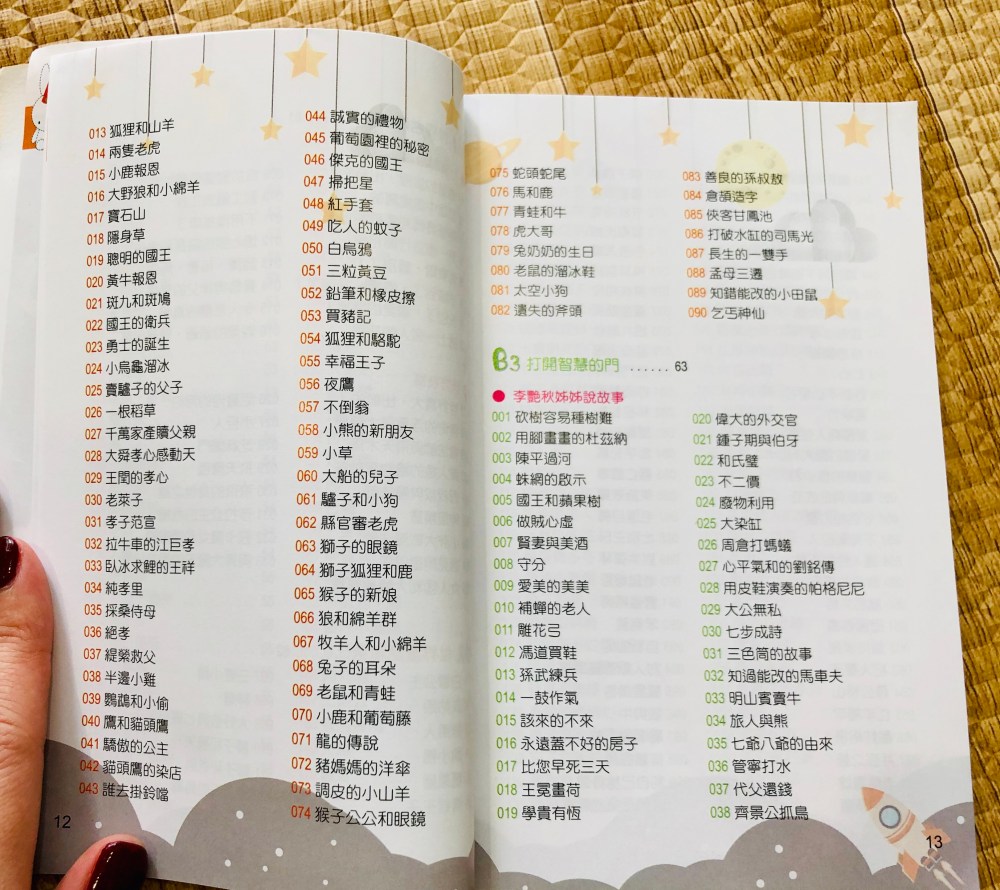 013 狐狸和山羊
014 兩隻老虎
015 小鹿報恩
016 大野狼和小綿羊
017 寶石山
018 隱身草
019 聰明的國王
020 黃牛報恩
021 斑九和斑鳩
022 國王的衛兵
023 勇士的誕生
024 小烏龜溜冰
025 賣驢子的父子
026 一根稻草
027 千萬家產贖父親
028 大舜孝心感動天
029 王閏的孝心
030 老萊子
031 孝子范宣
032 拉牛車的江巨孝
033 臥冰求鯉的王祥
034 純孝里
035 採桑侍母
036 絕孝
037 緹縈救父
038 半邊小雞
039 鸚鵡和小偷
040 鷹和貓頭鷹
041 驕傲的公主
042 貓頭鷹的染店
043 誰去掛鈴噹
12
044 誠實的禮物
045 葡萄園裡的秘密
046 傑克的國王
047 掃把星
048 紅手套
049 吃人的蚊子
050 白烏鴉
051 三粒黃豆
052 鉛筆和橡皮擦
053 買豬記
054 狐狸和駱駝
055 幸福王子
056 夜鷹
057 不倒翁
058 小熊的新朋友
059 小草
060 大船的兒子
061 驢子和小狗
062 縣官審老虎
063 獅子的眼鏡
064 獅子狐狸和鹿
065 猴子的新娘
066 狼和綿羊群
067 牧羊人和小綿羊
068 兔子的耳朵
069 老鼠和青蛙
070 小鹿和葡萄藤
071 龍的傳說
072 豬媽媽的洋傘
073 調皮的小山羊
074 猴子公公和眼鏡
075 蛇頭蛇尾
076 馬和鹿
077 青蛙和牛
078 虎大哥
079 兔奶奶的生日
080 老鼠的溜冰鞋
081 太空小狗
082 遺失的斧頭
083 善良的孫叔敖
084 倉頡造字
085 俠客甘鳳池
086 打破水缸的司馬光
087 長生的一雙手
088 孟母三遷
089 知錯能改的小田鼠
090 乞丐神仙
B3 打開智慧的門 ...... 63
● 李艷秋姊姊說故事
001 砍樹容易種樹難
002 用腳畫畫的杜茲納
003 陳平過河
004 蛛網的啟示
005 國王和蘋果樹
006 做賊心虛
007 賢妻與美酒
008 守分
009 愛美的美美
010 補蟬的老人
011 雕花弓
012 馮道買鞋
013 孫武練兵
014 一鼓作氣
015 該來的不來
016 永遠蓋不好的房子
017 比您早死三天
018 王冕畫荷
019 學貴有恆
020 偉大的外交官
021 鍾子期與伯牙
022 和氏璧
023 不二價
024 廢物利用
025 大染缸
026 周倉打螞蟻
027 心平氣和的劉銘傳
028 用皮鞋演奏的帕格尼尼
029 大公無私
030 七步成詩
031 三色筒的故事
032 知過能改的馬車夫
033 明山賓賣牛
034 旅人與熊
035 七爺八爺的由來
036 管寧打水
037 代父還錢
038 齊景公抓鳥
13